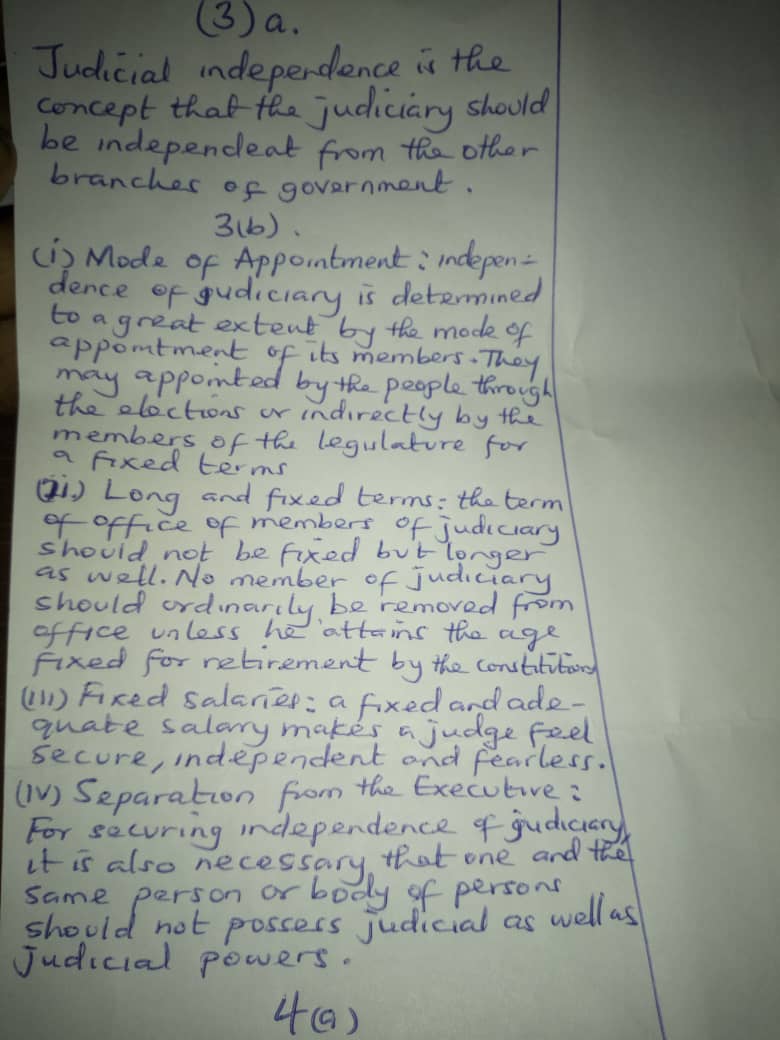 (3) a.
Judicial independence is the
concept that the judiciary should
be independent from the other
branches of government.
3(b).
(i) Mode of Appointment: indepen-
dence of judiciary is determined
to a great extent by the mode of
appointment of its members. They
may appointed by the people through
the elections or indirectly by the
members of the legulature for
a fixed terms
(ii) Long and fixed terms: the term
of office of members of judiciary
should not be fixed but longer
as well. No member of judiciary
should ordinarily be removed from
office unless he attains the age
fixed for retirement by the constitution
(iii) Fixed salaries: a fixed and ade-
quate salary makes a judge feel
secure, independent and fearless.
(iv) Separation from the Executive:
For securing independence of judiciary,
it is also necessary that one and the
same person or body of persons
should not possess judicial as well as
judicial powers.
4(a)